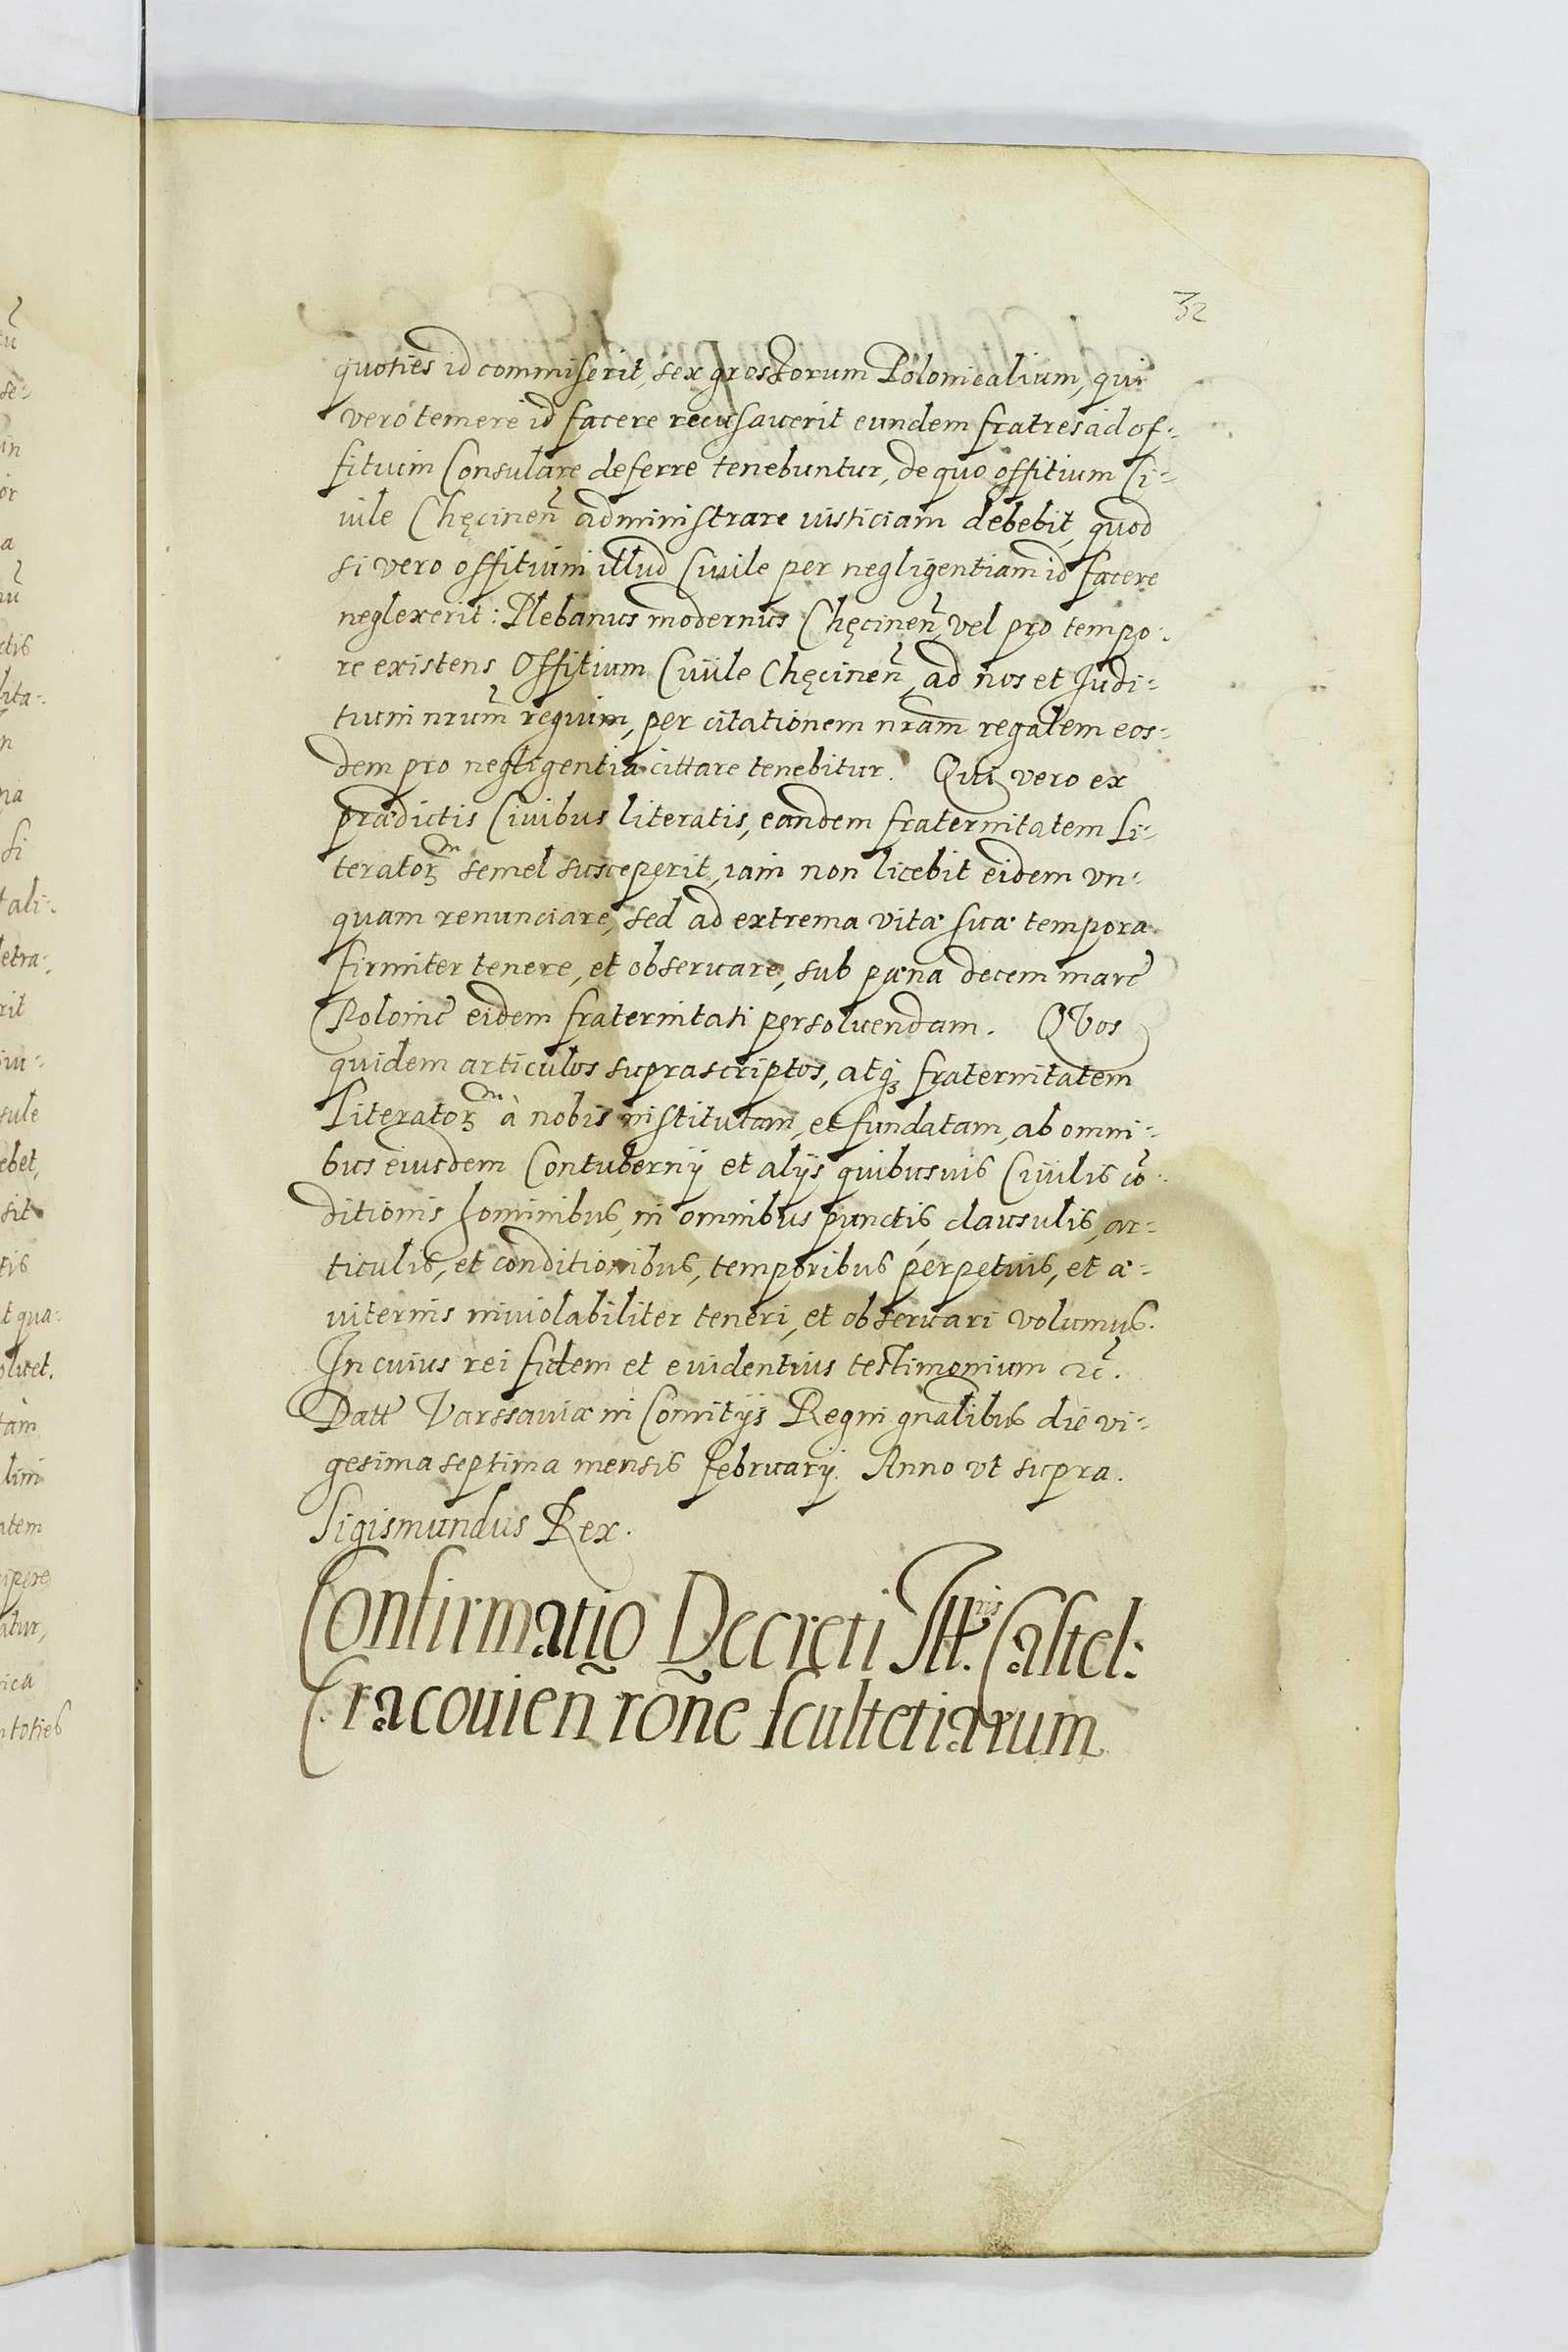 32
quoties id commiserit, sex grossorum Polonicalium, qui
vero temere id facere recusauerit eundem fratres ad of-
fitium Consulare deferre tenebuntur, de quo offitium Ci-
uile Chęcinen̄ administrare iusticiam debebit, quod
si vero offitium illud Ciuile per negligentiam id facere
neglexerit: Plebanus modernus Chęcinen̄, vel pro tempo-
re existens Offitium Ciuile Chęcinen̄, ad nos et Judi-
tium nrūm regium, per citationem nrām regalem eos-
dem pro negligentia cittare tenebitur. Qui vero ex
prædictis Ciuibus literatis, eandem fraternitatem Li-
teratoꝝ semel susceperit, iam non licebit eidem vn-
quam renunciare, sed ad extrema vitæ suæ tempora
firmiter tenere, et obseruare, sub pæna decem marc̄
Polonic̄ eidem fraternitati persoluendam. QVos
quidem articulos suprascriptos, atqꝫ fraternitatem
Literatoꝝ à nobis institutam, et fundatam, ab omni-
bus eiusdem Contubernij et alijs quibusuis Ciuilis cō-
ditionis hominibus, in omnibus punctis, clausulis, ar-
ticulis, et conditionibus, temporibus perpetuis, et æ-
uiternis inuiolabiliter teneri, et obseruari volumus.
In cuius rei fidem et euidentius testimonium ꝛc̄.
Datt Varssauiæ in Comitijs Regni gnālibus die vi-
gesima septima mensis februarij. Anno vt supra.
Sigismundus Rex.
Confirmatio Decreti Ill.ris Castel:
Cracouien̄ rōne scultetiarum
tū
se-
in
or
a
nū
ctis
lita-
n
na
si
tali-
letra-
rit
ciu-
sule
ebet,
sit
tis
t qua-
oluet.
tam
lini
atem
cipere
atur,
rica
ntoties